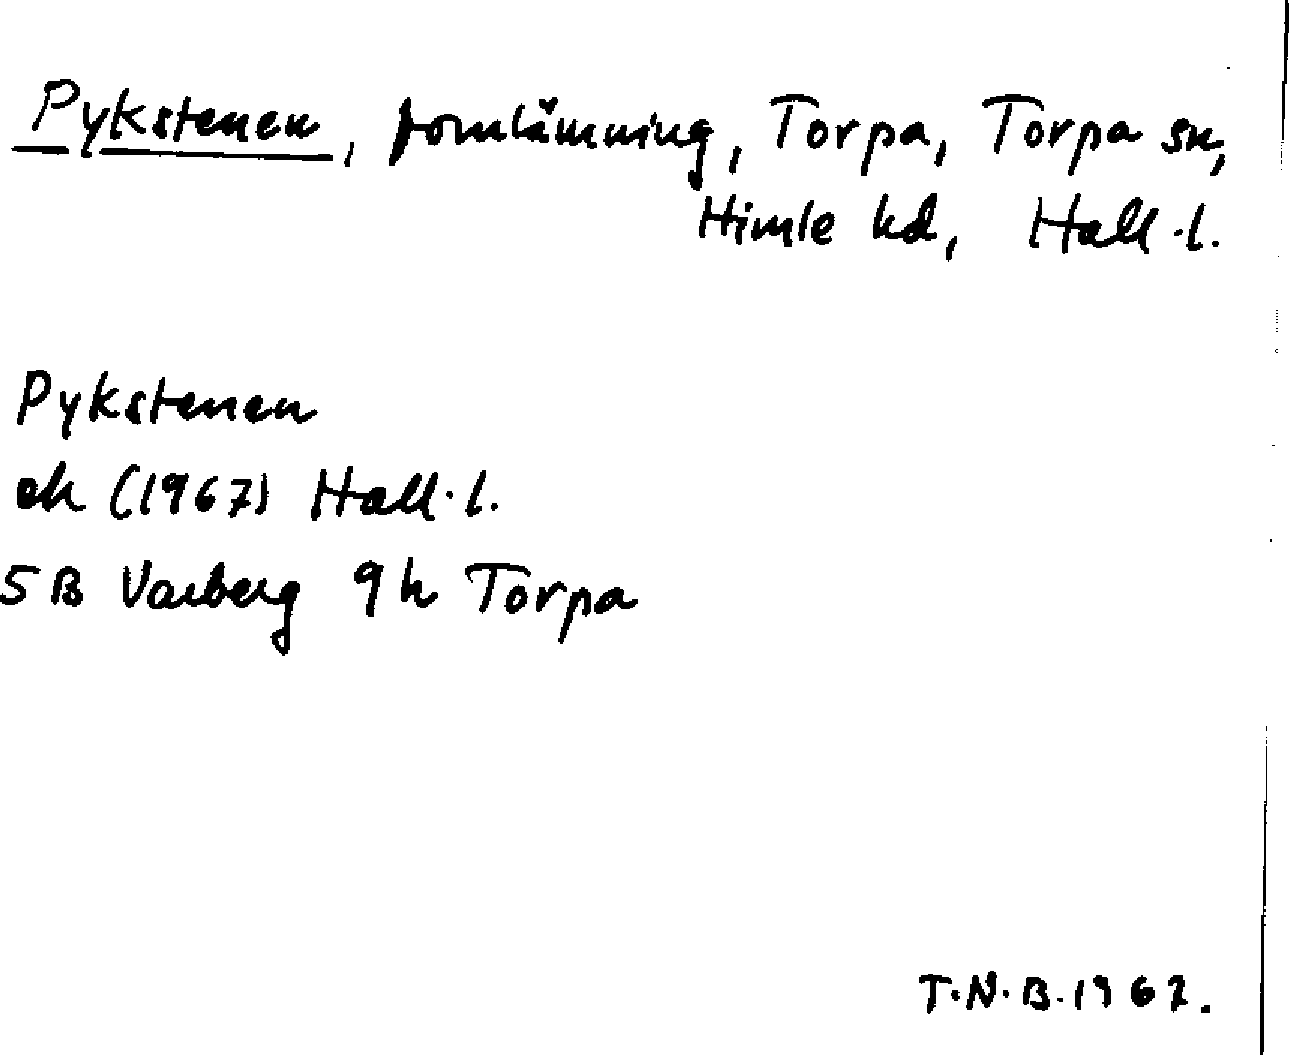 Pykstenen, fornlämning, Torpa, Torpa sn,
Himle hd, Hall.l.
Pykstenen
ek (1967) Hall.l.
5B Varberg 9h Torpa
T.N.B. 1967.